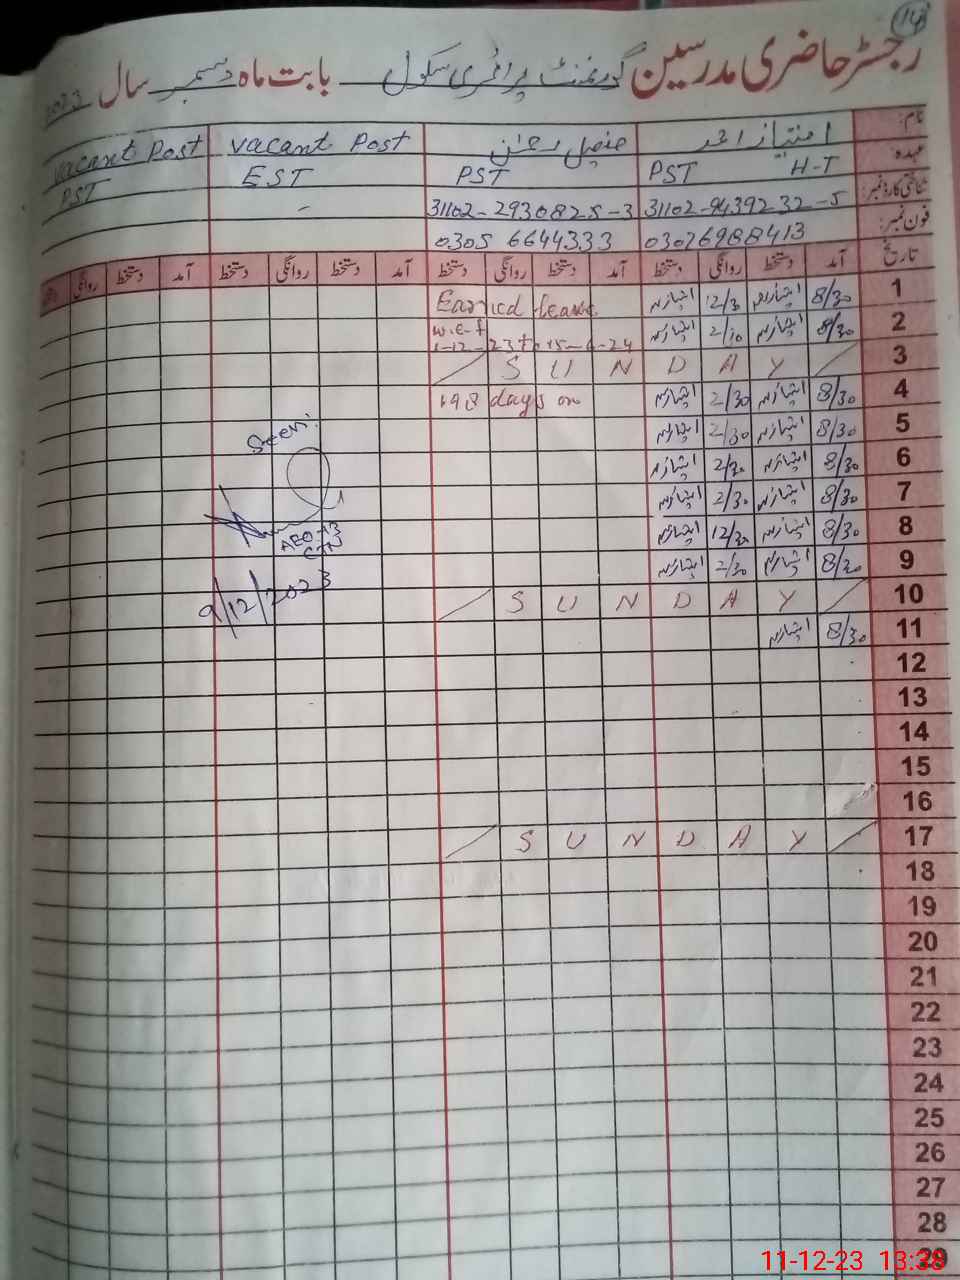 14
رجسٹر حاضری مدرسین گورنمنٹ پرائمری سکول بابت ماہ دسمبر سال 2023
نام: امتیاز احمد فیصل رحمٰن vacant Post vacant Post
عہدہ: H-T PST PST EST PST
شناختی کارڈ نمبر: 31102-9439232-5 31102-2930825-3 -
فون نمبر: 03026988413 0305 6644333
تاریخ آمد دستخط روانگی دستخط آمد دستخط روانگی دستخط آمد دستخط روانگی دستخط آمد دستخط روانگی
1 8/30 امتیاز احمد 12/30 امتیاز احمد Earned leave
2 8/30 امتیاز احمد 2/30 امتیاز احمد w.e.f
1-12-23 to 15-6-24
3 S U N D A Y
4 8/30 امتیاز احمد 2/30 امتیاز احمد 198 days on
5 8/30 امتیاز احمد 2/30 امتیاز احمد
6 8/30 امتیاز احمد 2/30 امتیاز احمد
7 8/30 امتیاز احمد 2/30 امتیاز احمد
8 8/30 امتیاز احمد 12/30 امتیاز احمد
9 8/30 امتیاز احمد 2/30 امتیاز احمد
10 S U N D A Y
11 8/30 امتیاز احمد
12
13
14
15
16
17 S U N D A Y
18
19
20
21
22
23
24
25
26
27
28
29
Seen:
9/12/2023
11-12-23 13:38